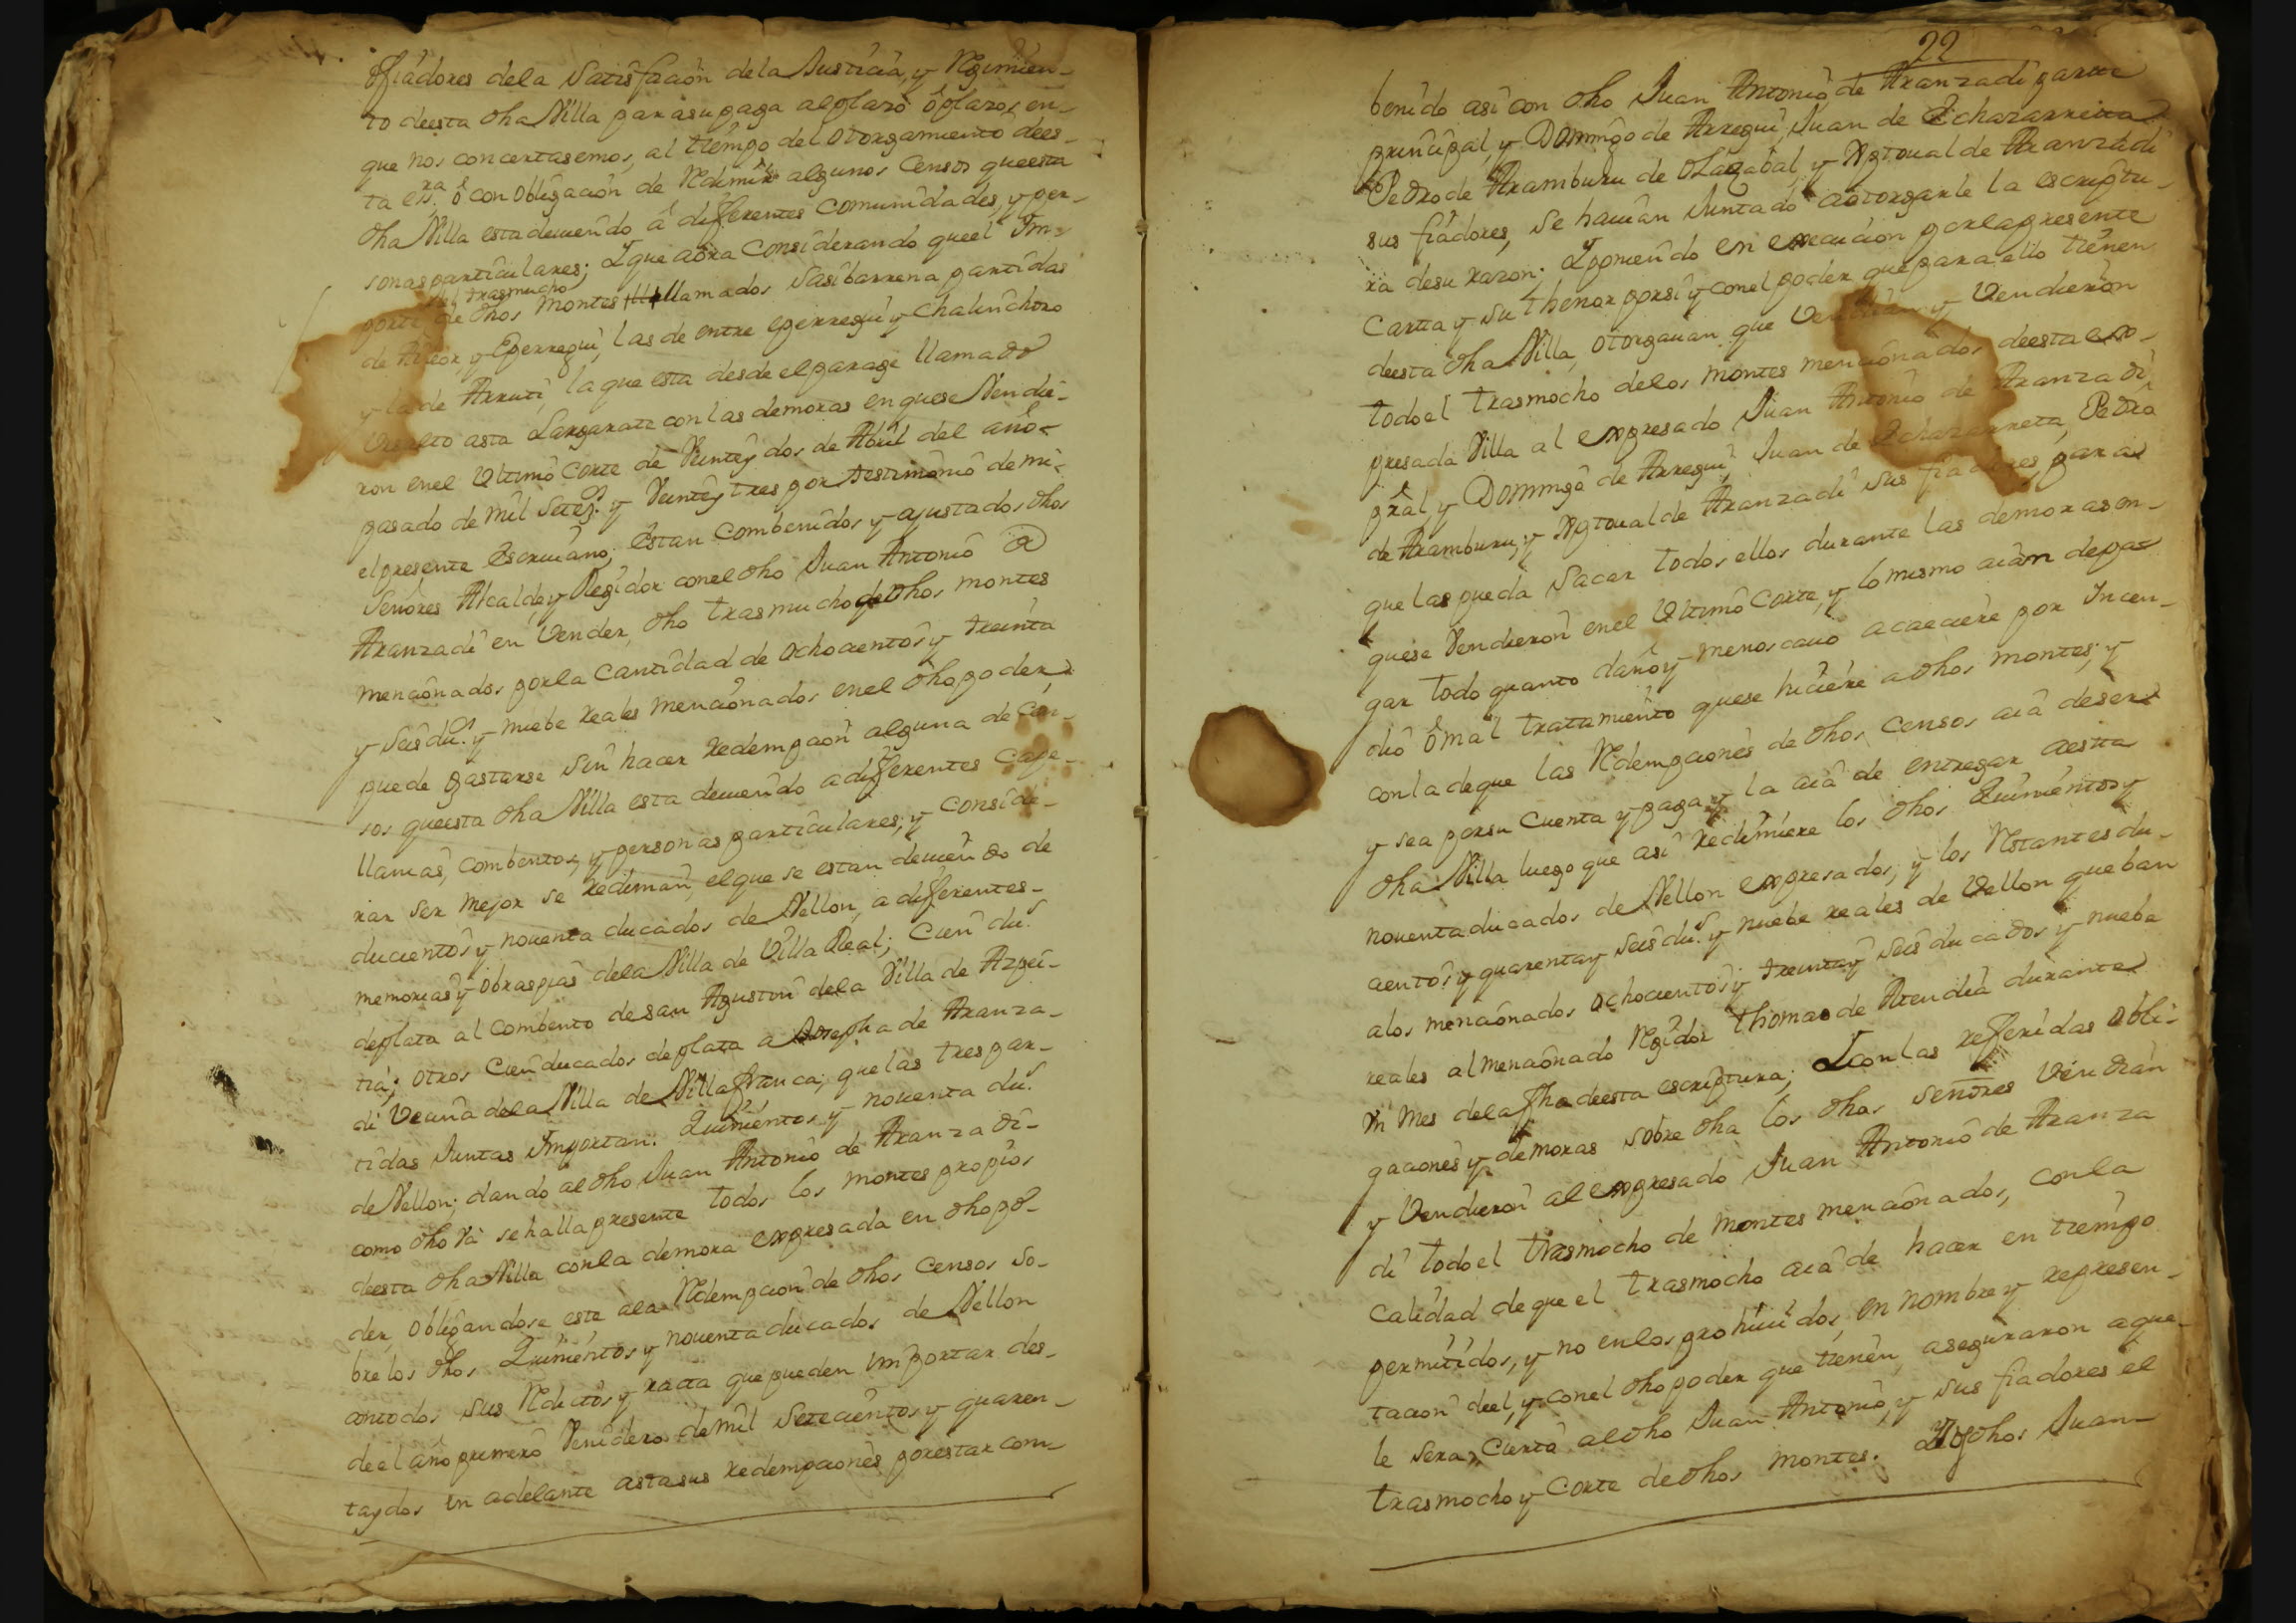 ofiadores dela Satisfacion dela Justicia, y Regimien-
to deesta dha Villa parasu paga alplazo ô plazos en-
que nos concertasemos, al tiempo del otorgamiento dees-
ta esra. ô con obligacion de Redimir algunos Censos queesta
dha Villa esta deuiendo â differentes Comunidades, y per-
sonas particulares; Y que aora Considerando queel Im-
porte del trasmucho de dhos Montes llamados Sasibarrena partidas
de y Eperregui, las de entre eperregui y Chalinchoro
y la de Arruti, la que esta desde el parage llamado
asta Largarate con las demoras en quese Vendie-
ron enel Ultimo Corte de Veinte y dos de Abril del año
pasado de mil Setezs. y Veinte y tres por testimonio de mi
elpresente Escriuano, estan combenidos y ajustados dhos
Señores Alcalde y Regidor conel dho Juan Antonio de
Aranzadi en Vender, dho trasmucho de dhos montes
mencionados porla Cantidad de ochocientos y treinta
y Seis dus. y nuebe Reales mencionados enel dho poder
puede gastarse Sin hacer Redempcion alguna de Cen-
sos queesta dha Villa esta deuiendo a differentes Cape-
llanias, Combentos, y personas particulares; y Conside-
rar ser mejor se Rediman, elque se estan deuiendo de
ducientos y nouenta ducados de Vellon, a differentes-
memorias y obraspias dela Villa de Villa Real; Cien dus.
deplata al Combento de san Agustin dela Villa de Azpei-
tia; otros Cien ducados deplata a Josepha de Aranza-
di Vecina dela Villa de Villafranca; que las tres par-
tidas Juntas Importan. Quinientos y nouenta dus.
de Vellon; dando al dho Juan Antonio de Aranzadi-
como dho Va se halla presente todos los montes propios
deesta dha Villa conla demora expresada en dho po-
der, obligandose este ala Redempcion de dhos Censos So-
bre los dhos Quinientos y nouenta ducados de Vellon
contodos sus Reditos y racta que pueden Importar des-
de el año primero Venidero de mil Setecientos y quaren-
ta y dos en adelante asta sus redempciones porestar com-
22
benido asi con dho Juan Antonio de Aranzadi
principal, y Domingo de Arregui, Juan de Echazarreta
Pedro de Aramburu de Olazabal, y Xptoual de Aranzadi
sus fiadores, se hauian Juntado aotorgarle la escriptu-
ra desu razon. Y poniendo en execucion porlapresente
Carta y su thenor porsi y conel poder quepara ello tienen
deesta dha Villa, otorgauan que Vendian y Vendieron
todo el trasmocho delos montes mencionados deesta ex-
presada Villa al expresado Juan Antonio de Aranzadi,
pral, y Domingo de Arregui, Juan de Echazarreta, Pedro
de Aramburu, y Xptoual de Aranzadi sus fiadores, para
que las pueda Sacar todos ellos durante las demoras en-
quese Vendieron enel Ultimo Corte, y lo mismo aian depa-
gar todo quanto daño y menoscauo acaeciere por Incen-
dio ô mal tratamiento quese hiciere a dhos montes; y
conla deque las Redempciones de dhos Censos aia deser
y sea porsu Cuenta y paga, y la aia de entregar aesta
dha Villa luego que asi redimiere los dhos Quinientos y
nouenta ducados de Vellon expresados; y los Restantes du-
cientos y quarenta y Seis dus. y nuebe reales de Vellon que ban
alos mencionados ochocientos y treinta y seis ducados y nuebe
reales al mencionado Regidor Thomas de Atendia durante
Un Mes dela fha deesta escriptura; Y con las referidas obli-
gaciones y demoras sobre dha los dhos señores Vendian
y Vendieron al expresado Juan Antonio de Aranza
di todo el trasmocho de montes mencionados, con la
Calidad de que el trasmocho aia de hacer en tiempo
permitidos, y no enlos prohiuidos, en nombre y represen-
tacion deel, y conel dho poder que tienen, aseguraron a que
le sera Cierta al dho Juan Antonio, y sus fiadores el
trasmocho y Corte de dhos montes. dhos Juan-